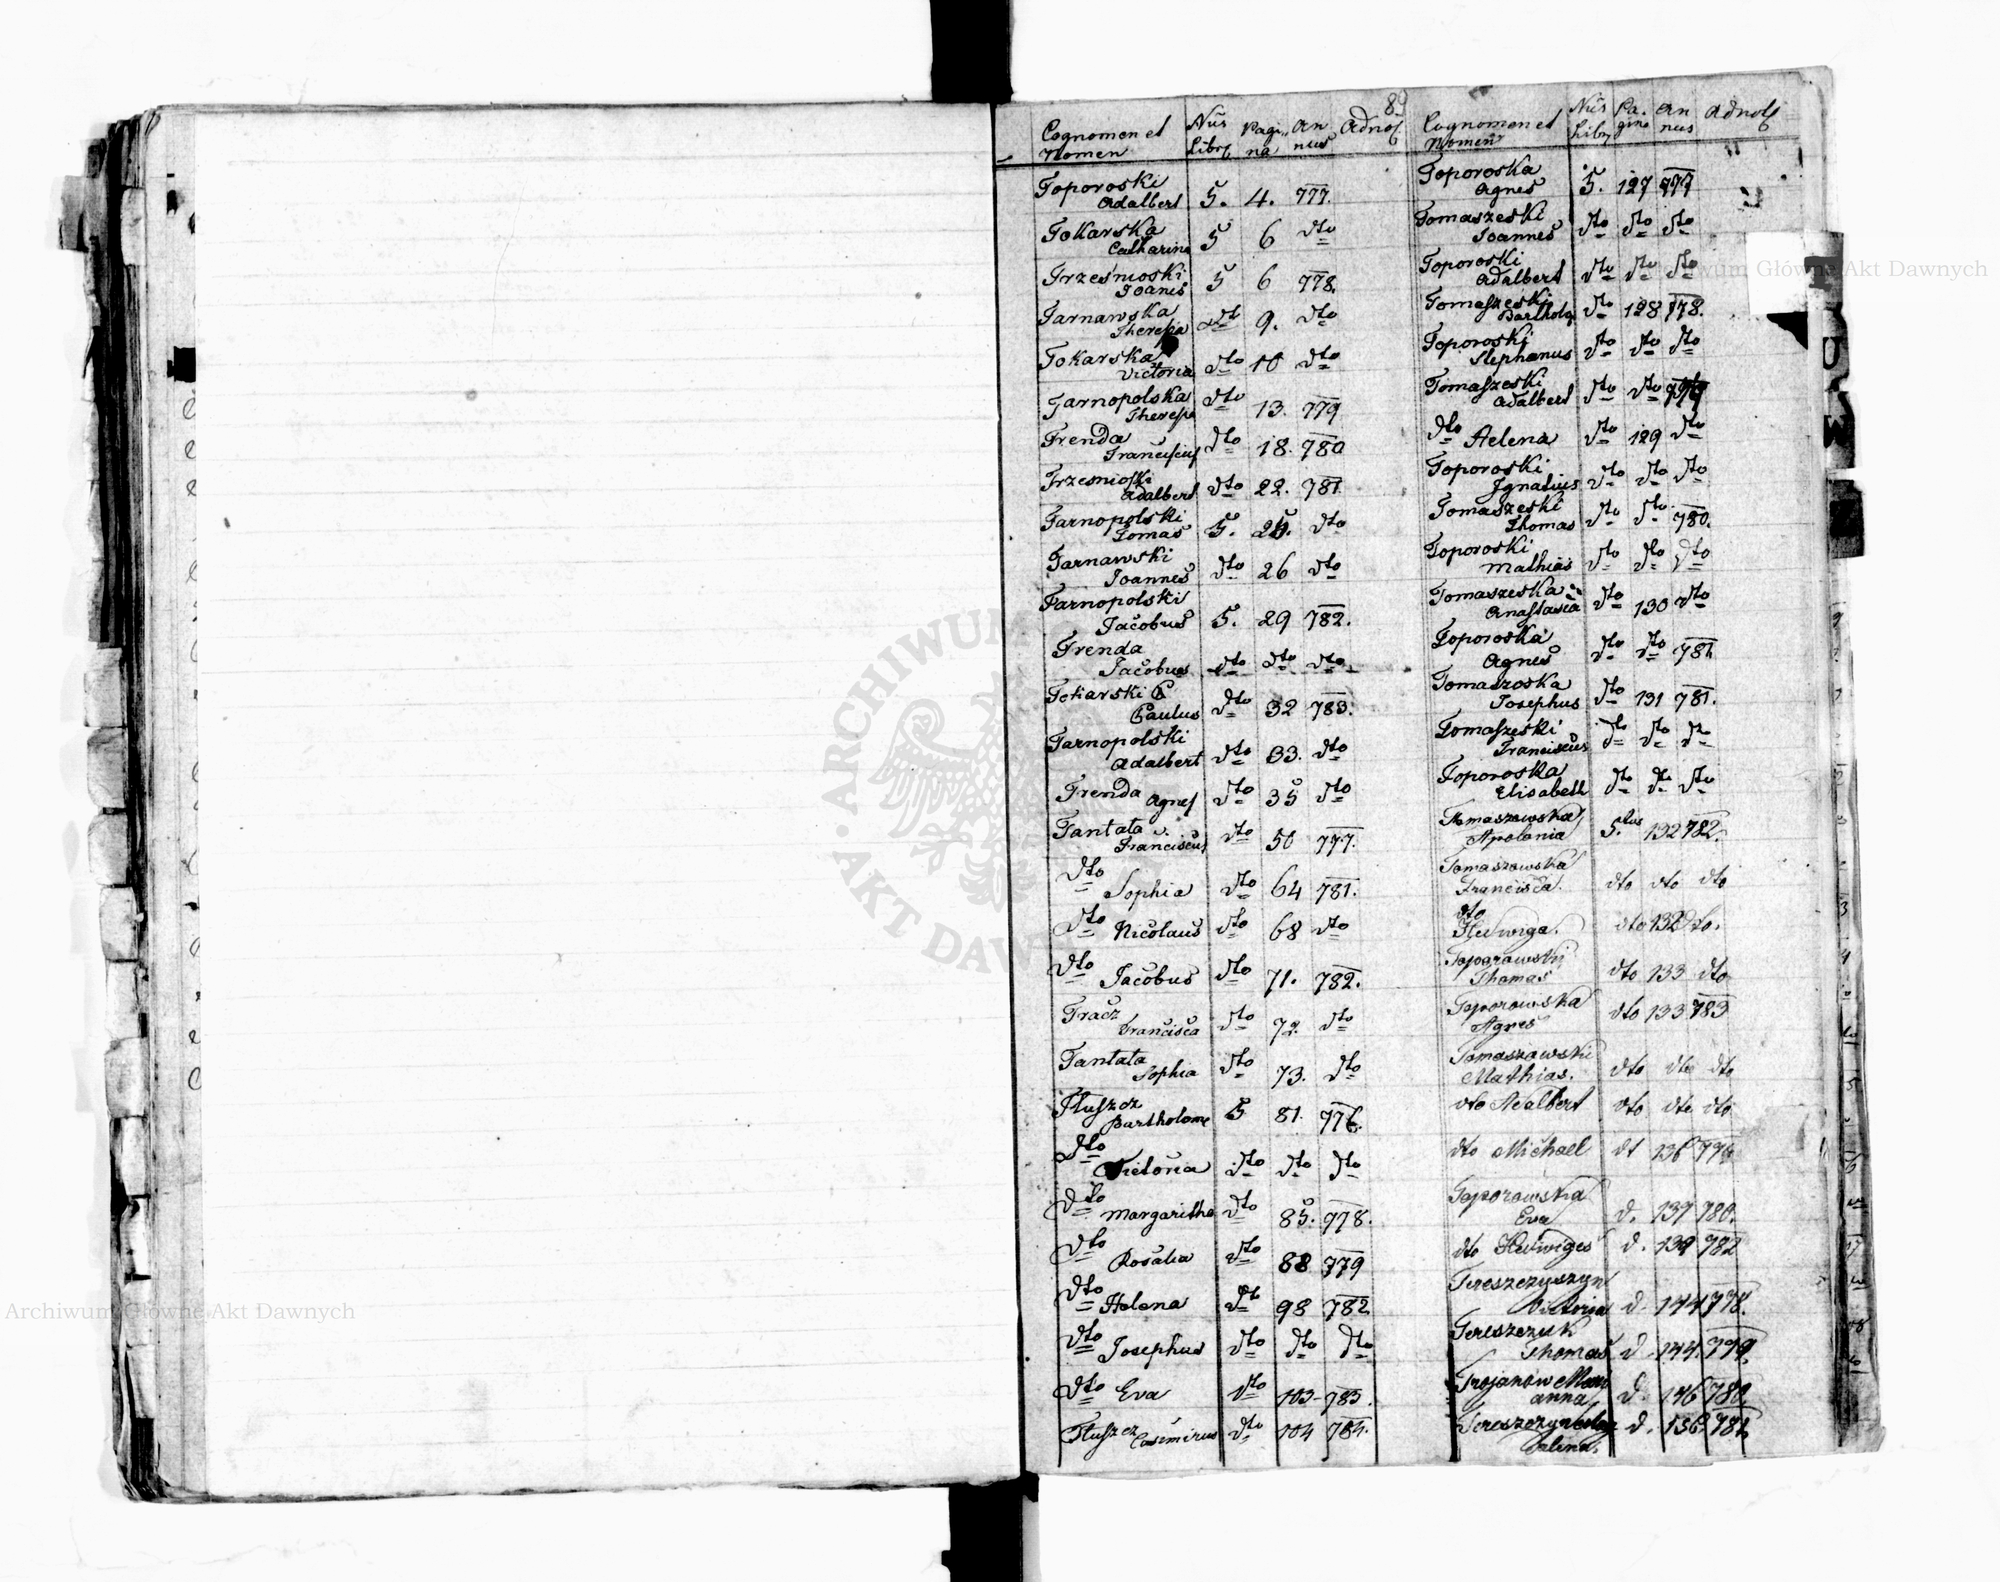 89
Cognomen et Nomen Nrus Libri Pagina Annus Adnot
Toporoski Adalbert 5. 4. 777.
Tokarska Catharina 5 6 dto
Trześnioski Joanes 5 6 778.
Tarnawska Theresia dto 9. dto
Tokarska Victoria dto 10 dto
Tarnopolska Theresia dto 13. 779
Trenda Franciscus dto 18. 780
Trzesnioski Adalbert dto 22. 781
Tarnopolski Tomas 5. 25. dto
Tarnawski Joannes dto 26 dto
Tarnopolski Jacobus 5. 29 782.
Trenda Jacobus dto dto dto
Tokarski Paulus dto 32 783.
Tarnopolski Adalbert dto 33. dto
Trenda Agnes dto 35 dto
Tantata Franciscus dto 50 777.
dto Sophia dto 64 781.
dto Nicolaus dto 68 dto
dto Jacobus dto 71. 782.
Tracz Francisca dto 72. dto
Tantata Sophia dto 73. dto
Tłuszcz Bartholome 5 81. 776.
dto Victoria dto dto dto
dto Margaritha dto 85. 778.
dto Rosalia dto 88 779
dto Helena dto 98 782
dto Josephus dto dto dto
dto Eva dto 103 783.
Tłuszcz Casimirus dto 104 784.
Cognomen et Nomen Nrus Libri Pagina Annus Adnot
Toporoska Agnes 5. 127 777
Tomaszeski Joannes dto dto dto
Toporoski Adalbert dto dto dto
Tomaszeski Barthol dto 128 778.
Toporoski Stephanus dto dto dto
Tomaszeski Adalbert dto dto 779
dto Helena dto 129 dto
Toporoski Ignatius dto dto dto
Tomaszeski Thomas dto dto 780.
Toporoski Mathias dto dto dto
Tomaszeska Anastasia dto 130 dto
Toporoska Agnes dto dto 781
Tomaszoska Josephus dto 131 781.
Tomaszeski Franciscus dto dto dto
Toporoska Elisabeth dto dto dto
Tomaszewska Apolonia 5. 132 782.
Tomaszewska Francisca. dto dto dto
dto Hedwiga. dto 132 dto.
Toporowski Thomas dto 133 dto
Toporowska Agnes dto 133 783
Tomaszewski Mathias. dto dto dto
dto Adalbert dto dto dto
dto Michael dt 136 776
Toporowska Eva d. 137 780.
dto Hedwiges d. 139 782
Tereszczyszyn Victoria d. 144 778.
Tereszczuk Thomas d. 144. 779.
Trojanow Marianna d. 146 780.
d. 156. 781.
ARCHIWUM GŁÓWNE AKT DAWNYCH
Archiwum Główne Akt Dawnych
Archiwum Główne Akt Dawnych